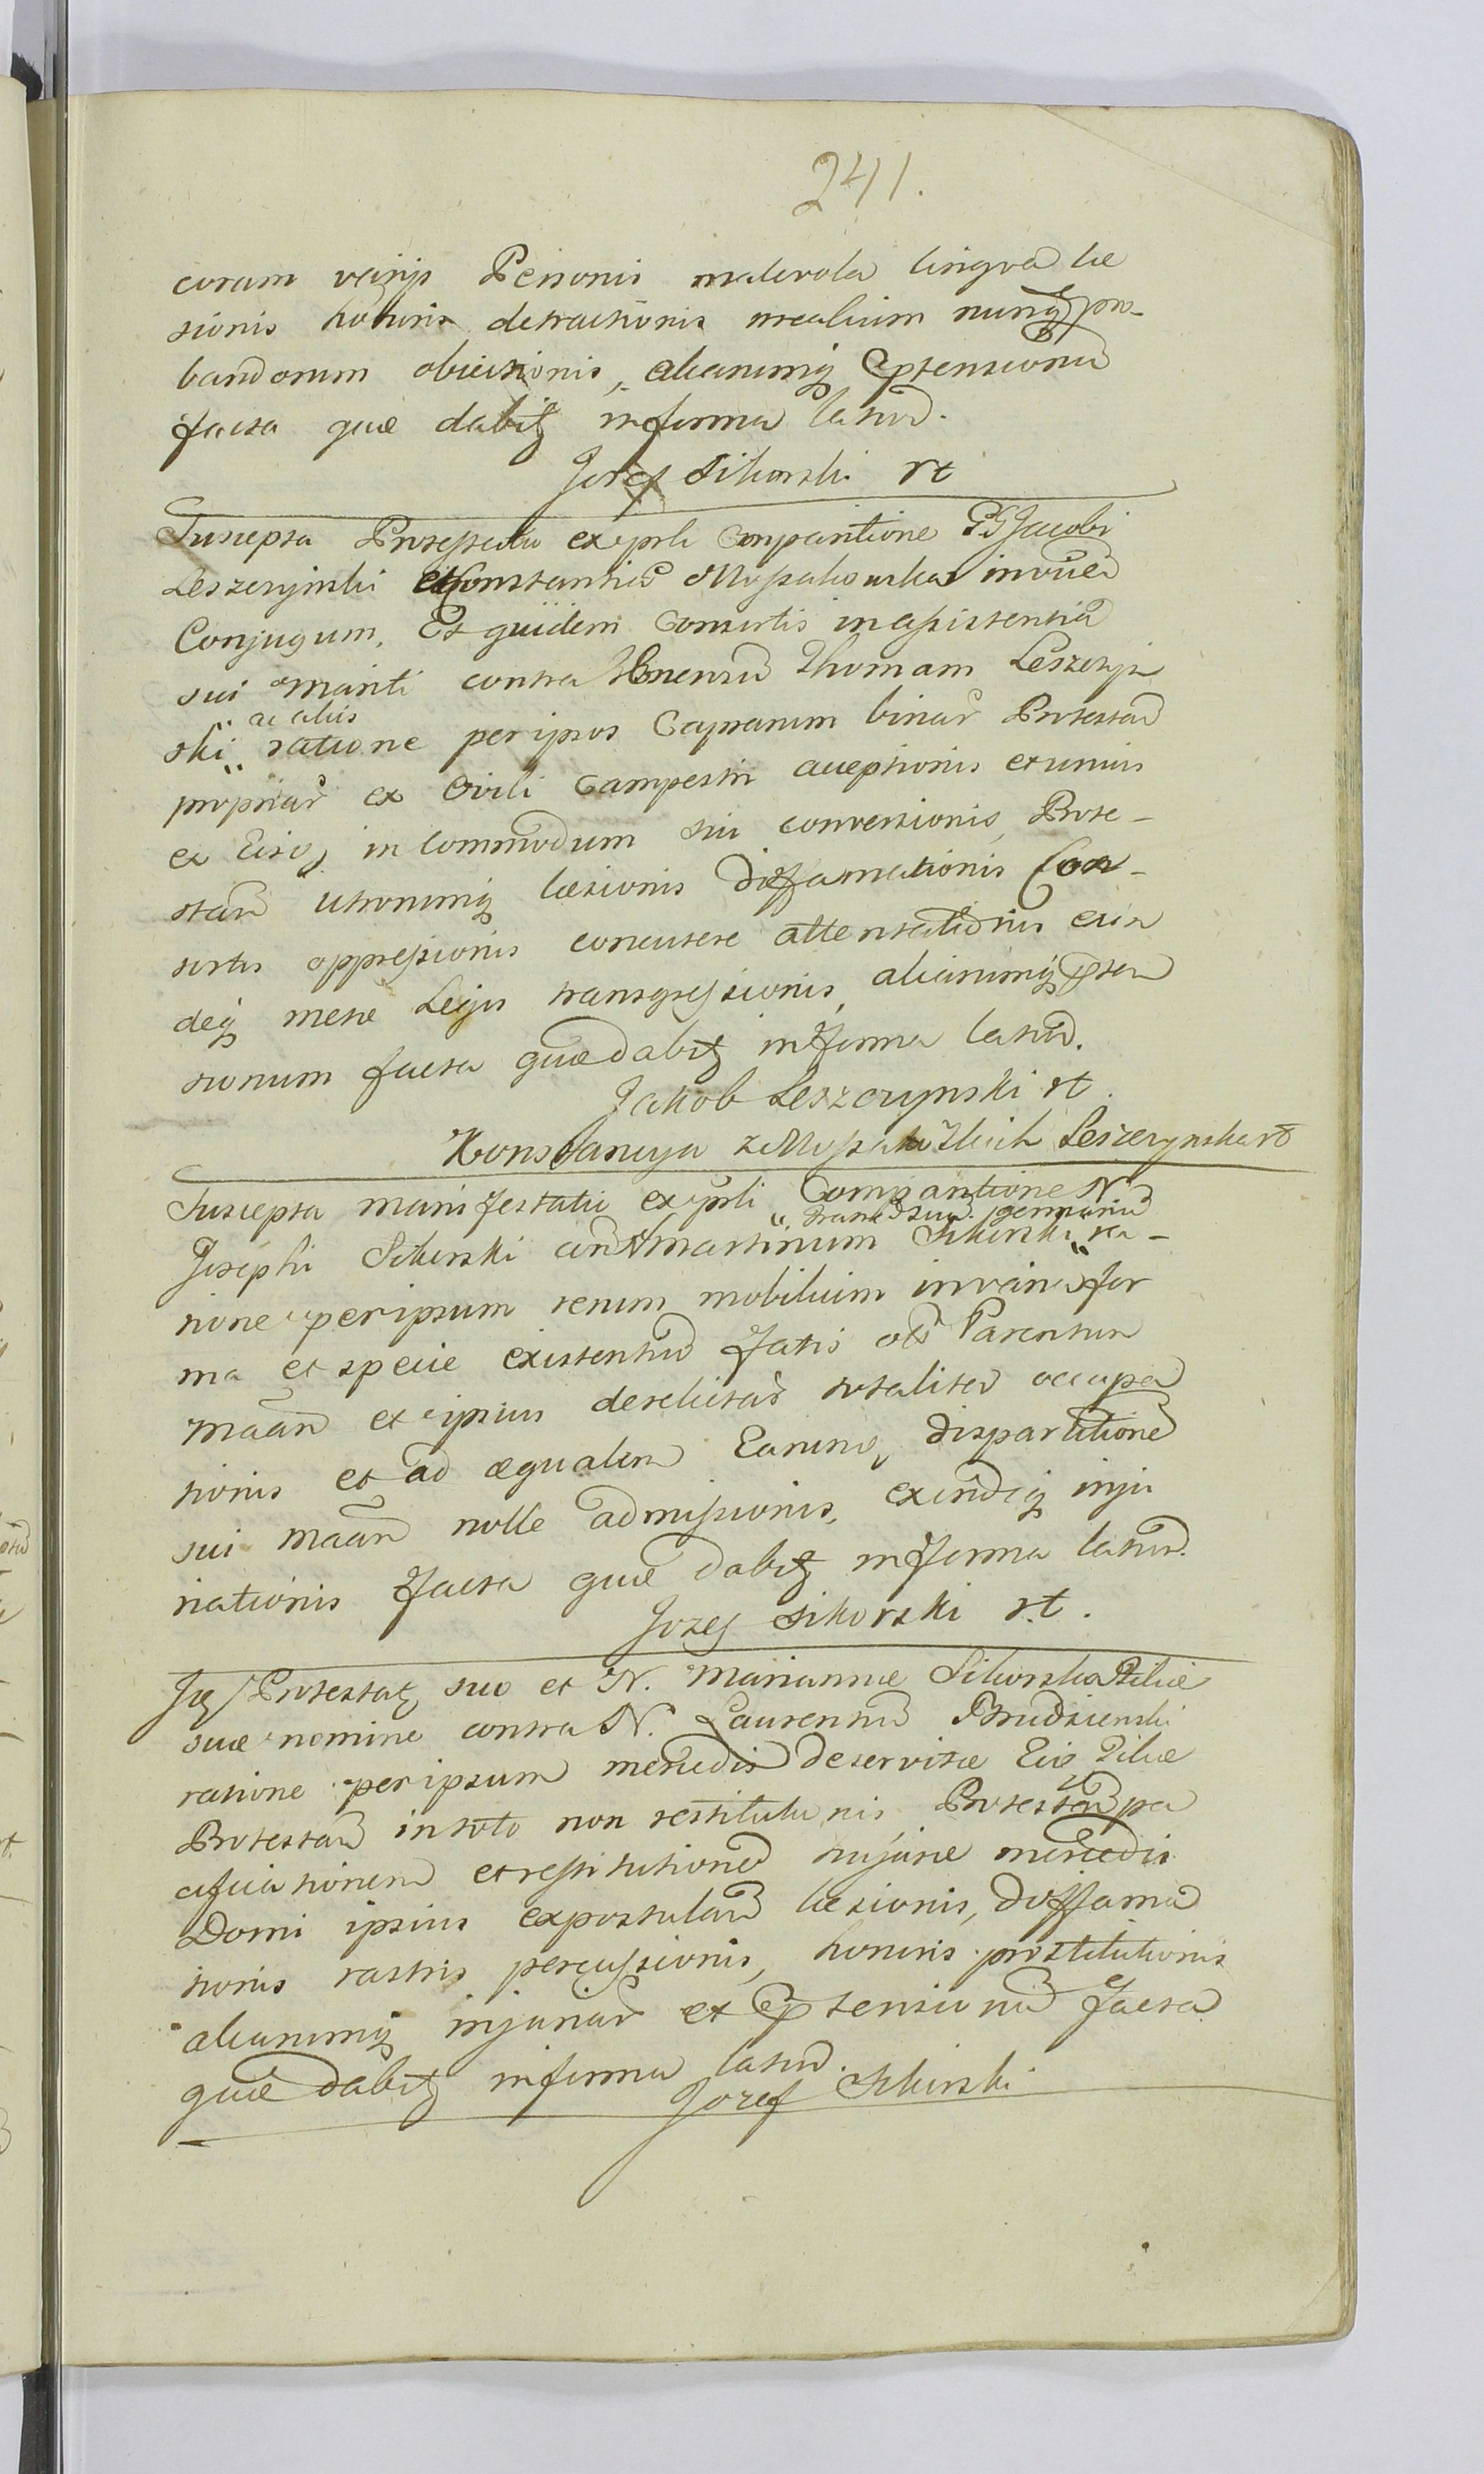 241.
coram varijs Personis malevola lingva lae
sionis honoris detractionis mealium nunq̃ pro-
bandorum obiectionis, aliarumq; Eptensionũ
facta quae dabitq; in forma latiũ.
Jozef Sikorski rt
Suscepta Protestatio ex pñli Comparitione GG Jacobi
Leszczynski et Constantiae Mossakowska invicẽ
Conjugum, Et quidem Consortis in assistentia
sui Mariti contra Gnensum Thomam Leszczyń
ac aliis
ski „ ratione per ipsos Caprarum binar̃ Protestañ
propriar̃ ex Ovili Campestri acceptionis et unius
ex Eis, in commodum sui conversionis, Prote-
stañ utrorumq; laesionis diffamationis Con-
sortis oppressionis concutere attentationis exin
deq; mere Legis transgressionis, aliarumq; pten
sionum facta quae dabitq; in forma latiũ.
Jakob Leszczynski rt.
Konstancya z Mossakoskich Leszczynska rt
Suscepta manifestatio ex pñli Comparitione N.
„ Fratrẽ suũ germanũ
Josephi Sikorski contra Martinum Sikorski „ ra-
tione per ipsum rerum mobilium in varia for
ma et specie existentiũ fatis olĩ Parentum
Maañ et ipsius derelictar̃ totaliter occupa
tionis et ad aequalem Earum, dispartitionẽ
sui Maañ nolle admissionis, exindeq; inju
riationis facta quae dabitq; in forma latiũ.
Jozef Sikorski rt.
Ję Protestatq; suo et N. Mariannae Sikorska Filiae
suae nomine contra N. Laurentiũ Brudzienski
ratione per ipsum mercedis deservitae Eis Filiae
Protestañ in toto non restitutionis, Protestañ pa
cificationem et restitutionẽ hujusce mercedis
Domi ipsius expostulañ laesionis, diffama
tionis rastris percussionis, honoris prostitutionis
aliarumq; injuriar̃ et ptensionũ facta
quae dabitq; in forma latiũ.
Jozef Sikorski